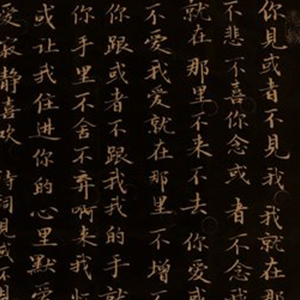 你見或者不見我我就在那
不悲不喜你念或者不念我
就在那里不来不去你愛或
不愛我愛就在那里不增
你跟或者不跟我我的手就
你手里不舍不弃啊来我
或让我住进你的心里默愛
愛寂静喜欢诗词見或不見